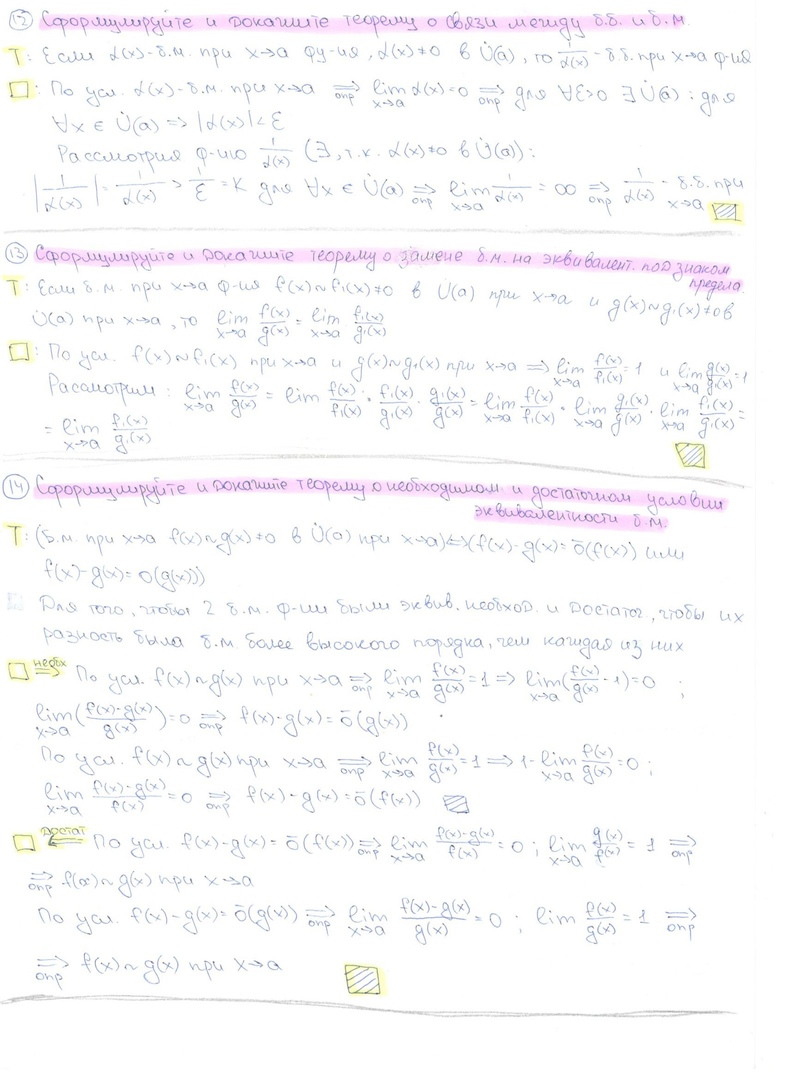 12 Сформулируйте и докажите теорему о связи между б.б. и б.м.
Т: Если α(x)-б.м. при x→a фу-ия, α(x)≠0 в U̇(a), то 1/α(x) - б.б. при x→a ф-ия
□: По усл. α(x)-б.м. при x→a ⟹опр lim x→a α(x)=0 ⟹опр для ∀ε>0 ∃ U̇(a) : для
∀x ∈ U̇(a) => |α(x)|<ε
Рассмотрим ф-ию 1/α(x) (∃, т.к. α(x)≠0 в U̇(a)):
|1/α(x)| = 1/α(x) > 1/ε = K для ∀x ∈ U̇(a) ⟹опр lim x→a 1/α(x) = ∞ ⟹опр 1/α(x) - б.б. при x→a
13 Сформулируйте и докажите теорему о замене б.м. на эквивалент. под знаком
предела.
Т: Если б.м. при x→a ф-ия f(x)~f₁(x)≠0 в U̇(a) при x→a и g(x)~g₁(x)≠0 в
U̇(a) при x→a, то lim x→a f(x)/g(x) = lim x→a f₁(x)/g₁(x)
□: По усл. f(x)~f₁(x) при x→a и g(x)~g₁(x) при x→a ⟹ lim x→a f(x)/f₁(x) = 1 и lim x→a g(x)/g₁(x) = 1
Расмотрим : lim x→a f(x)/g(x) = lim f(x)/f₁(x) · f₁(x)/g₁(x) · g₁(x)/g(x) = lim x→a f(x)/f₁(x) · lim x→a g₁(x)/g(x) · lim x→a f₁(x)/g₁(x) =
= lim x→a f₁(x)/g₁(x)
14 Сформулируйте и докажите теорему о необходимом и достаточном условии
эквивалентности б.м.
Т: (б.м. при x→a f(x)~g(x)≠0 в U̇(a) при x→a)⟺(f(x)-g(x)=ō(f(x)) или
f(x)-g(x)=ō(g(x)))
Для того, чтобы 2 б.м. ф-ии были эквив. необход. и достаточ., чтобы их
разность была б.м более высокого порядка, чем каждая из них
□ необх ⟹ По усл. f(x)~g(x) при x→a ⟹опр lim x→a f(x)/g(x) = 1 ⟹ lim x→a (f(x)/g(x) - 1) = 0 ;
lim x→a (f(x)-g(x)/g(x)) = 0 ⟹опр f(x)-g(x)=ō(g(x))
По усл. f(x)~g(x) при x→a ⟹опр lim x→a f(x)/g(x) = 1 ⟹ 1- lim x→a f(x)/g(x) = 0 ;
lim x→a f(x)-g(x)/f(x) = 0 ⟹опр f(x)-g(x)=ō(f(x))
□ достат ⟸ По усл. f(x)-g(x)=ō(f(x)) ⟹опр lim x→a f(x)-g(x)/f(x) = 0 ; lim x→a g(x)/f(x) = 1 ⟹опр
⟹опр f(x)~g(x) при x→a
По усл. f(x)-g(x)=ō(g(x)) ⟹опр lim x→a f(x)-g(x)/g(x) = 0 ; lim f(x)/g(x) = 1 ⟹опр
⟹опр f(x)~g(x) при x→a